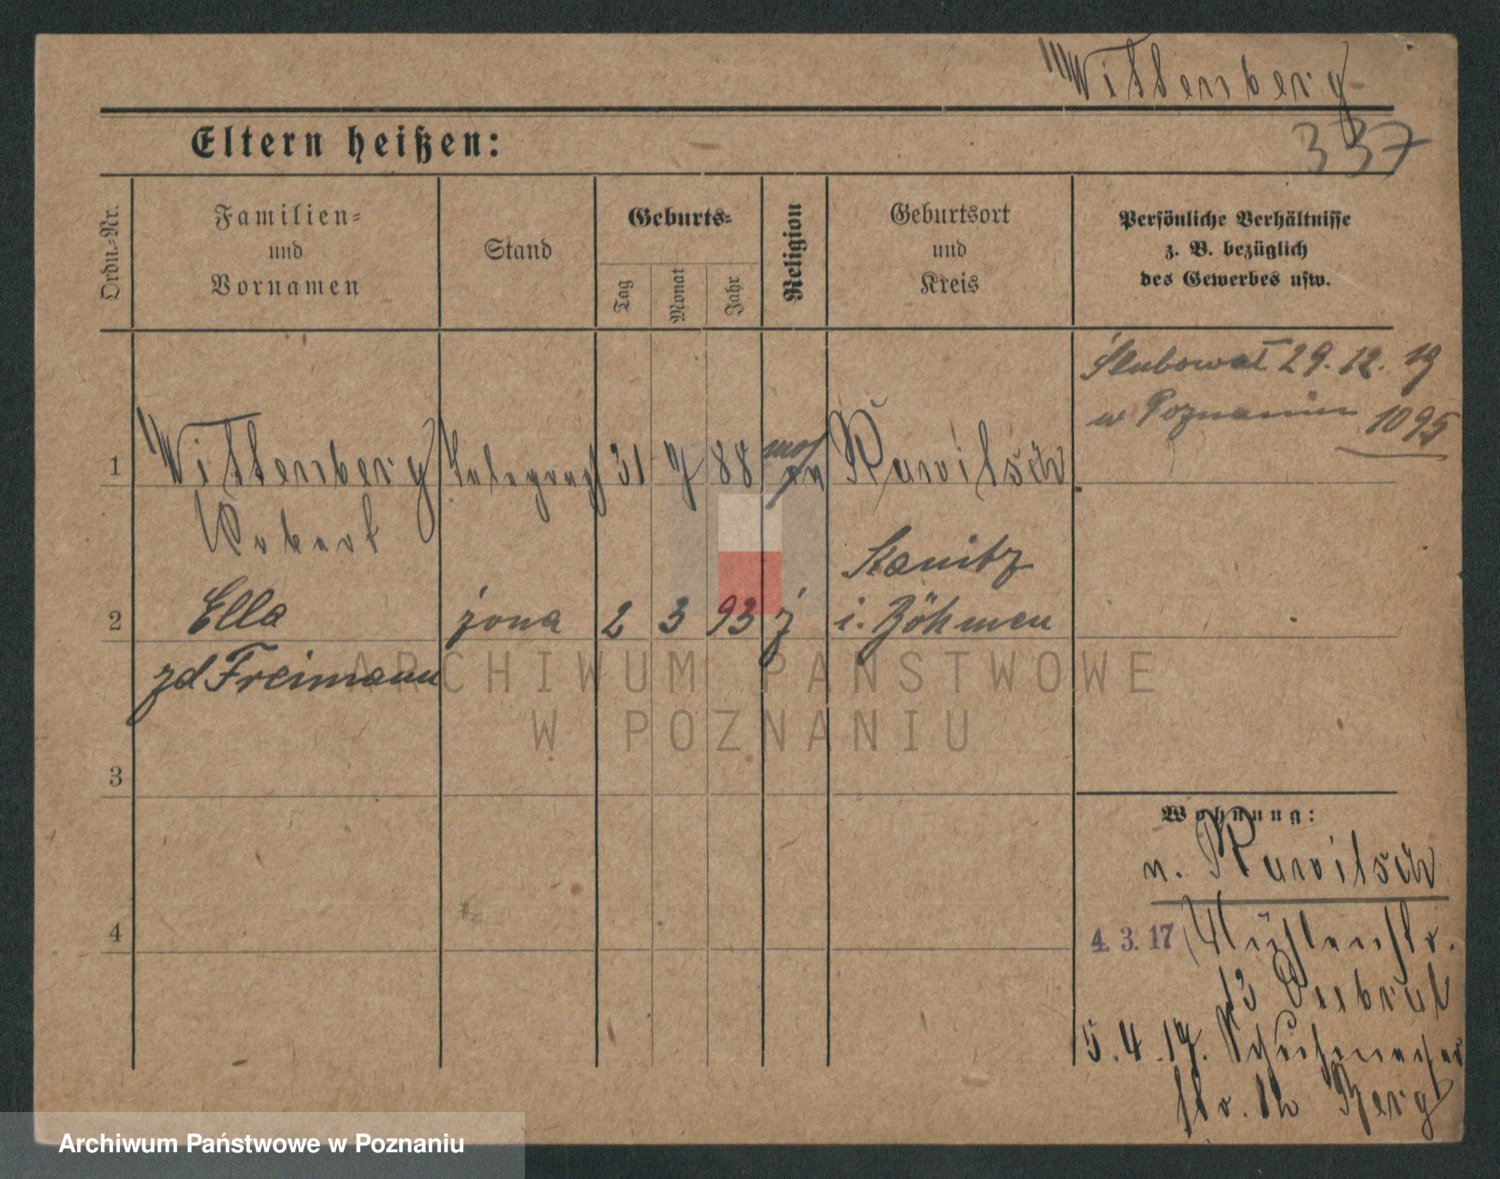 Wittenberg
337
Eltern heißen:
Ordn.-Nr.
Familien-
und
Vornamen
Stand
Geburts-
Tag
Monat
Jahr
Religion
Geburtsort
und
Kreis
Persönliche Verhältnisse
z. B. bezüglich
des Gewerbes usw.
Ślubował 29. 12. 19
w Poznaniu 1095
1 Wittenberg 31 7 88 mos Rawitsch
Robert
2 Ella żona 2 3 93 ż Kanitz
i. Böhmen
zd Freimann
ARCHIWUM PAŃSTWOWE
W POZNANIU
3
Wohnung:
n. Rawitsch
4
4. 3. 17
13
5. 4. 17. Schuhmacher
str. 12 Berg
Archiwum Państwowe w Poznaniu